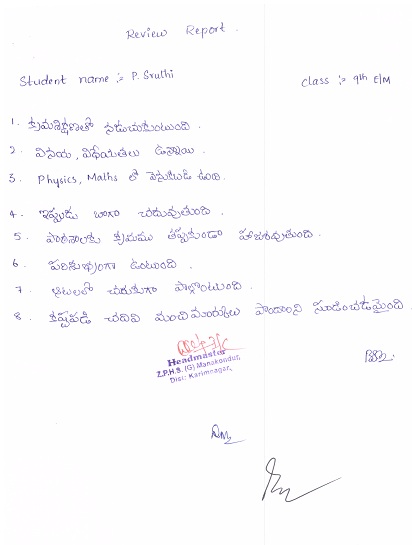 Review Report.
Student name :- P. Sruthi
Class :- 9th E/M
1. క్రమశిక్షణతో నడుచుకుంటుంది.
2. వినయ, విధేయతలు ఉన్నాయి.
3. Physics, Maths లో వెనుకబడి ఉంది.
4. ఇప్పుడు బాగా చదువుతుంది.
5. పాఠశాలకు క్రమము తప్పకుండా హాజరవుతుంది.
6. పరిశుభ్రంగా ఉంటుంది.
7. ఆటలలో చురుకుగా పాల్గొంటుంది.
8. కష్టపడి చదివి మంచి మార్కులు పొందాలని సూచించడమైంది.
Headmaster
Z.P.H.S. (G) Manakondur,
Dist: Karimnagar.